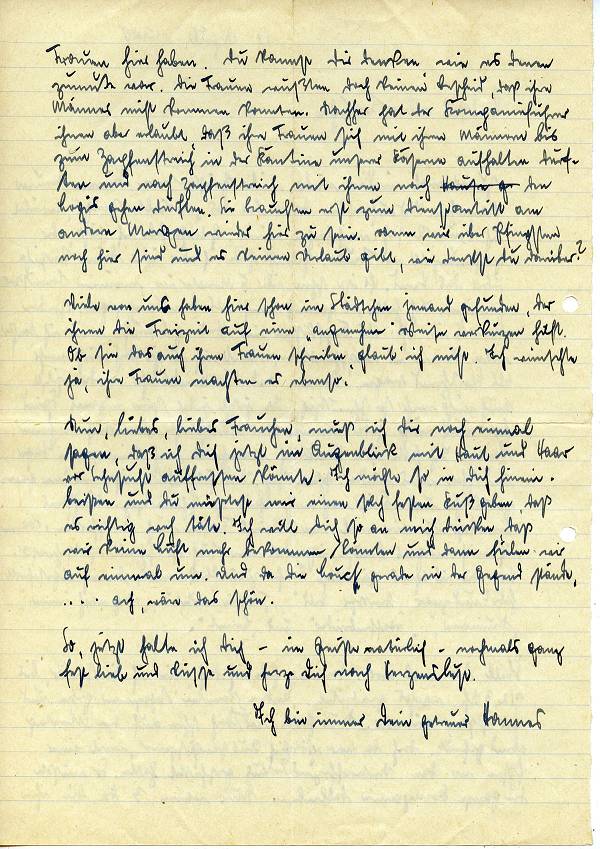 Frauen hier haben. Du kannst dir denken wie es denen
zumute war. Die Frauen wußten doch keinen Bescheid, daß ihre
Männer nicht kommen konnten. Nachher hat der Kompanieführer
ihnen aber erlaubt, daß ihre Frauen sich mit ihren Männern bis
zum Zapfenstreich in der Kantine unserer Kaserne aufhalten durf-
ten und nach Zapfenstreich mit ihnen nach Hause g in
Logis gehen durften. Sie brauchten erst zum Dienstantritt am
andern Morgen wieder hier zu sein. Wenn wir über Pfingsten
noch hier sind und es keinen Urlaub gibt, wie denkst du darüber?
Viele von uns haben hier schon im Städtchen jemand gefunden, der
ihnen die Freizeit auf eine „angenehme" Weise verkürzen hilft.
Ob sie das auch ihren Frauen schreiben glaub' ich nicht. Ich wünschte
ja, ihre Frauen machten es ebenso.
Nun, liebes, liebes Frauchen, muß ich dir noch einmal
sagen, daß ich dich jetzt im Augenblick mit Haut und Haar
vor Sehnsucht auffressen könnte. Ich möchte so in dich hinein-
beißen und du müßtest mir einen solch festen Kuß geben, daß
es richtig weh täte. Ich will dich so an mich drücken daß
wir keine Luft mehr bekommen könnten und dann fielen wir
auf einmal um. Und da die Couch gerade in der Gegend stände,
.... ach, wär das schön.
So, jetzt halte ich Dich – im Geiste natürlich – nochmals ganz
fest lieb und küsse und herze Dich nach Herzenslust.
Ich bin immer Dein getreuer Hannes